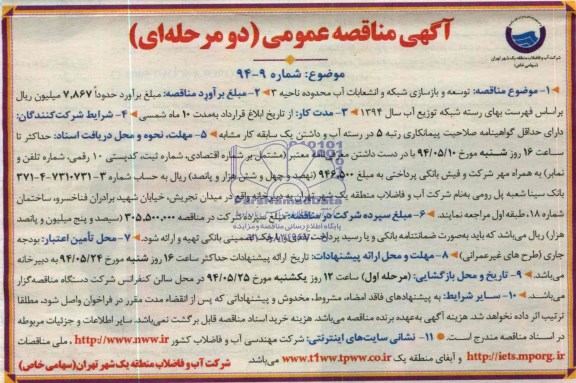 آگهی مناقصه عمومی (دو مرحله‌ای)
شرکت آب و فاضلاب منطقه یک شهر تهران
(سهامی خاص)
موضوع: شماره ۹-۹۴
۱- موضوع مناقصه: توسعه و بازسازی شبکه و انشعابات آب محدوده ناحیه ۳ ۲- مبلغ برآورد مناقصه: مبلغ برآورد حدوداً ۷,۸۶۷ میلیون ریال
براساس فهرست بهای رسته شبکه توزیع آب سال ۱۳۹۴ ۳- مدت کار: از تاریخ ابلاغ قرارداد به‌مدت ۱۰ ماه شمسی ۴- شرایط شرکت‌کنندگان:
دارای حداقل گواهینامه صلاحیت پیمانکاری رتبه ۵ در رسته آب و داشتن یک سابقه کار مشابه ۵- مهلت، نحوه و محل دریافت اسناد: حداکثر تا
ساعت ۱۶ روز شنبه مورخ ۹۴/۰۵/۱۰ با در دست داشتن معرفی‌نامه معتبر (مشتمل بر شماره اقتصادی، شماره ثبت، کدپستی ۱۰ رقمی، شماره تلفن و
نمابر) به همراه مهر شرکت و فیش بانکی پرداختی به مبلغ ۹۴۶,۵۰۰ (نهصد و چهل و شش هزار و پانصد) ریال به حساب شماره ۳-۷۳۱۰۷۳۱-۴-۳۷۱
بانک سینا شعبه پل رومی به‌نام شرکت آب و فاضلاب منطقه یک شهر تهران به دبیرخانه واقع در میدان تجریش، خیابان شهید برادران فناخسرو، ساختمان
شماره ۱۸، طبقه اول مراجعه نمایند. ۶- مبلغ سپرده شرکت در مناقصه: مبلغ سپرده شرکت در مناقصه ۳۰۵,۵۰۰,۰۰۰ (سیصد و پنج میلیون و پانصد
هزار) ریال می‌باشد که باید به‌صورت ضمانتنامه بانکی و یا رسید پرداخت نقد و یا چک تضمینی بانکی تهیه و ارائه شود. ۷- محل تأمین اعتبار: بودجه
جاری (طرح های غیرعمرانی) ۸- مهلت و محل ارائه پیشنهادات: تاریخ ارائه پیشنهادات حداکثر ساعت ۱۶ روز شنبه مورخ ۹۴/۰۵/۲۴ به دبیرخانه
می‌باشد. ۹- تاریخ و محل بازگشایی: (مرحله اول) ساعت ۱۲ روز یکشنبه مورخ ۹۴/۰۵/۲۵ در محل سالن کنفرانس شرکت دستگاه مناقصه‌گزار
می‌باشد. ۱۰- سایر شرایط: به پیشنهادهای فاقد امضاء، مشروط، مخدوش و پیشنهاداتی که پس از انقضاء مدت مقرر در فراخوان واصل شود، مطلقا
ترتیب اثر داده نخواهد شد. هزینه آگهی به‌عهده برنده مناقصه می‌باشد. هزینه خرید اسناد مناقصه قابل برگشت نمی‌باشد. سایر اطلاعات و جزئیات مربوطه
در اسناد مناقصه مندرج است. ۱۱- نشانی سایت‌های اینترنتی: شرکت مهندسی آب و فاضلاب کشور http://www.nww.ir ، ملی مناقصات
http://iets.mporg.ir و آبفای منطقه یک www.t1ww.tpww.co.ir می‌باشد.
شرکت آب و فاضلاب منطقه یک شهر تهران (سهامی خاص)